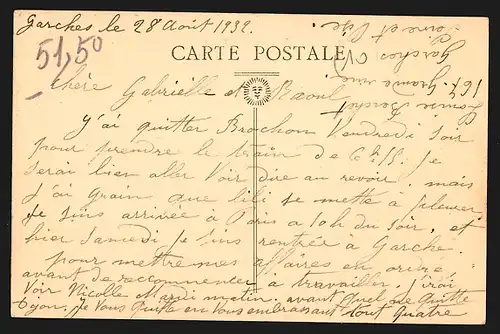 Garches le 28 Août 1932.
51,50
CARTE POSTALE
Chère Gabrielle et Raoul
J'ai quitter Brochon Vendredi soir
pour prendre le train de 6h 11. Je
serai bien aller Voir dire au revoir. mais
j'ai grain que lili se mette a pleurer
Je suis arrivée a Paris a 10h du soir, et
hier Samedi je suis rentrée a Garche.
pour mettre mes affaires en ordre,
avant de recommencer a travailler, j'irai
Voir Nicolle Mardi matin. avant quitte
Dijon. Je Vous quitte en Vous embrassant tout quatre
167 Grande rue
Garches
Seine et Oise